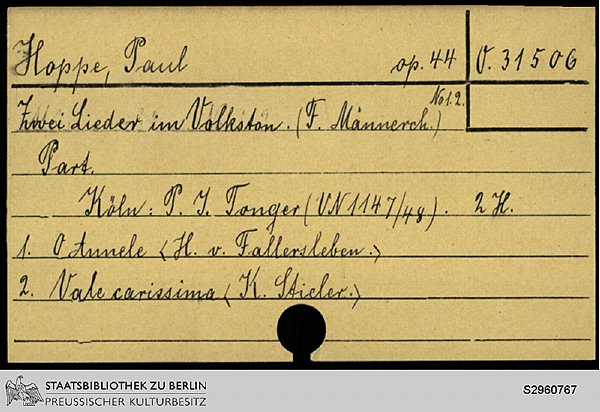 Hoppe, Paul op. 44 O. 31506
Zwei Lieder im Volkston. (F. Männerch.) No 1.2.
Part.
Köln: P. J. Tonger (VN 1147/48). 2 H.
1. O Annele <H. v. Fallersleben.>
2. Vale carissima <K. Stieler.>
STAATSBIBLIOTHEK ZU BERLIN
PREUSSISCHER KULTURBESITZ
S2960767